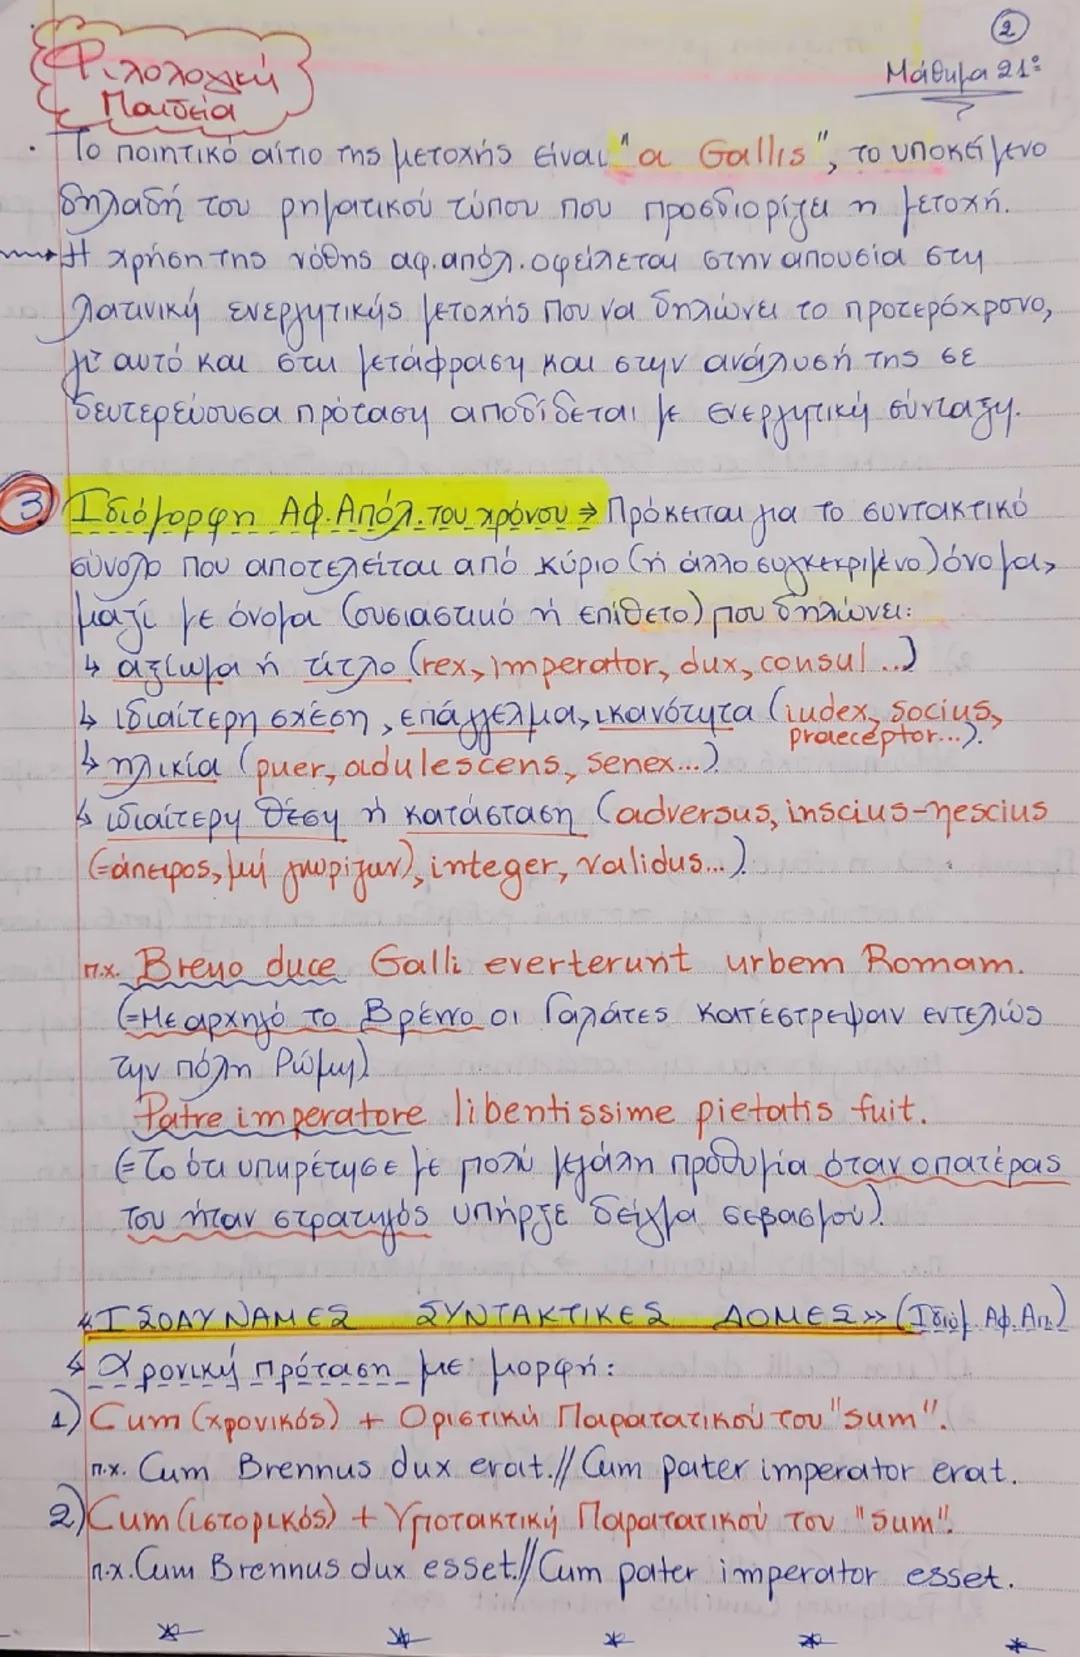 Φιλολογική
Παιδεία
2
Μάθημα 21º
• Το ποιητικό αίτιο της μετοχής είναι "a Gallis", το υποκείμενο
δηλαδή του ρηματικού τύπου που προσδιορίζει η μετοχή.
Η χρήση της νόθης αφ. απόλ. οφείλεται στην απουσία στη
λατινική ενεργητικής μετοχής που να δηλώνει το προτερόχρονο,
γι' αυτό και στη μετάφραση και στην ανάλυσή της σε
δευτερεύουσα πρόταση αποδίδεται με ενεργητική σύνταξη.
3 Ιδιόμορφη Αφ. Απόλ. του χρόνου → Πρόκειται για το συντακτικό
σύνολο που αποτελείται από κύριο (ή άλλο συγκεκριμένο) όνομα,
μαζί με όνομα (ουσιαστικό ή επίθετο) που δηλώνει:
↳ αξίωμα ή τίτλο (rex, imperator, dux, consul...)
↳ ιδιαίτερη σχέση, επάγγελμα, ικανότητα (iudex, socius,
praeceptor...).
↳ ηλικία (puer, adulescens, senex...).
↳ ιδιαίτερη θέση ή κατάσταση (adversus, inscius-nescius
(=άπειρος, μη γνωρίζων), integer, validus...).
π.χ. Breno duce Galli everterunt urbem Romam.
(=Με αρχηγό το Βρέννο οι Γαλάτες κατέστρεψαν εντελώς
την πόλη Ρώμη)
Patre imperatore libentissime pietatis fuit.
(=Το ότι υπηρέτησε με πολύ μεγάλη προθυμία όταν ο πατέρας
του ήταν στρατηγός υπήρξε δείγμα σεβασμού).
«ΙΣΟΔΥΝΑΜΕΣ ΣΥΝΤΑΚΤΙΚΕΣ ΔΟΜΕΣ» (Ιδιόμ. Αφ. Απ.)
↳ Χρονική πρόταση με μορφή:
1) Cum (χρονικός) + Οριστική Παρατατικού του "sum".
π.χ. Cum Brennus dux erat. // Cum pater imperator erat.
2) Cum (ιστορικός) + Υποτακτική Παρατατικού του "sum".
π.χ. Cum Brennus dux esset. // Cum pater imperator esset.